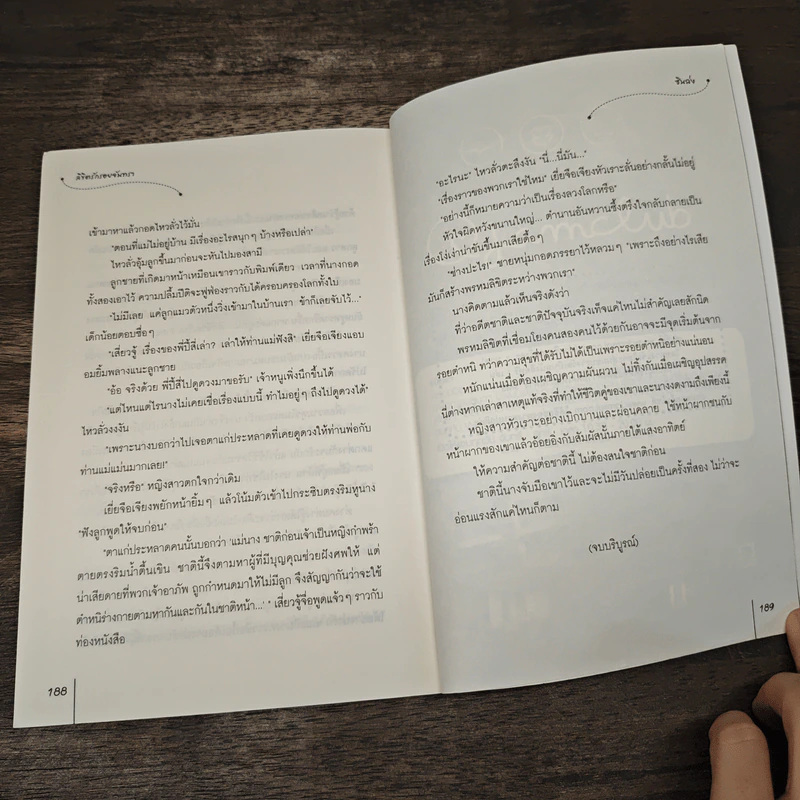 ลิขิตรักรอยจันทรา
เข้ามาหาแล้วกอดไหวลั่วไว้มั่น
"ตอนที่แม่ไม่อยู่บ้าน มีเรื่องอะไรสนุกๆ บ้างหรือเปล่า"
ไหวลั่วอุ้มลูกขึ้นมาก่อนจะหันไปมองสามี
ลูกชายที่เกิดมาหน้าเหมือนเขาราวกับพิมพ์เดียว เวลาที่นางกอด
ทั้งสองเอาไว้ ความปลื้มปีติจะฟูฟ่องราวกับได้ครอบครองโลกทั้งใบ
"ไม่มีเลย แค่ลูกแมวตัวหนึ่งวิ่งเข้ามาในบ้านเรา ข้าก็เลยจับไว้..."
เด็กน้อยตอบซื่อๆ
"เสี่ยวจู้ เรื่องของพี่ปี้สี่เล่า? เล่าให้ท่านแม่ฟังสิ" เยี่ยจือเจียงแอบ
อมยิ้มพลางแนะลูกชาย
"อ้อ จริงด้วย พี่ปี้สี่ไปดูดวงมาขอรับ" เจ้าหนูเพิ่งนึกขึ้นได้
"แต่ไหนแต่ไรนางไม่เคยเชื่อเรื่องแบบนี้ ทำไมอยู่ๆ ถึงไปดูดวงได้"
ไหวลั่วงงงัน
"เพราะนางบอกว่าไปเจอตาแก่ประหลาดที่เคยดูดวงให้ท่านพ่อกับ
ท่านแม่แม่นมากเลย!"
"จริงหรือ" หญิงสาวตกใจกว่าเดิม
เยี่ยจือเจียงพยักหน้ายิ้มๆ แล้วโน้มตัวเข้าไปกระซิบตรงริมหูนาง
"ฟังลูกพูดให้จบก่อน"
"ตาแก่ประหลาดคนนั้นบอกว่า 'แม่นาง ชาติก่อนเจ้าเป็นหญิงกำพร้า
ตายตรงริมน้ำตื้นเขิน ชาตินี้จึงตามหาผู้ที่มีบุญคุณช่วยฝังศพให้ แต่
น่าเสียดายที่พวกเจ้าอาภัพ ถูกกำหนดมาให้ไม่มีลูก จึงสัญญากันว่าจะใช้
ตำหนิร่างกายตามหากันและกันในชาติหน้า...' " เสี่ยวจู้จื่อพูดแจ้วๆ ราวกับ
ท่องหนังสือ
188
ซันสง
"อะไรนะ" ไหวลั่วตะลึงงัน "นี่...นี่มัน..."
"เรื่องราวของพวกเราใช่ไหม" เยี่ยจือเจียงหัวเราะลั่นอย่างกลั้นไม่อยู่
"อย่างนี้ก็หมายความว่าเป็นเรื่องลวงโลกหรือ"
หัวใจผิดหวังขนานใหญ่... ตำนานอันหวานซึ้งตรึงใจกลับกลายเป็น
เรื่องโง่เง่าน่าขันขึ้นมาเสียดื้อๆ
"ช่างปะไร!" ชายหนุ่มกอดภรรยาไว้หลวมๆ "เพราะถึงอย่างไรเสีย
มันก็สร้างพรหมลิขิตระหว่างพวกเรา"
นางคิดตามแล้วเห็นจริงดังว่า
ที่ว่าอดีตชาติและชาติปัจจุบันจริงเท็จแค่ไหนไม่สำคัญเลยสักนิด
พรหมลิขิตที่เชื่อมโยงคนสองคนไว้ด้วยกันอาจจะมีจุดเริ่มต้นจาก
รอยตำหนิ ทว่าความสุขที่ได้รับไม่ได้เป็นเพราะรอยตำหนิอย่างแน่นอน
หนักแน่นเมื่อต้องเผชิญความผันผวน ไม่ทิ้งกันเมื่อเผชิญอุปสรรค
นี่ต่างหากเล่าสาเหตุแท้จริงที่ทำให้ชีวิตคู่ของเขาและนางงดงามถึงเพียงนี้
หญิงสาวหัวเราะอย่างเบิกบานและผ่อนคลาย ใช้หน้าผากชนกับ
หน้าผากของเขาแล้วอ้อยอิ่งกับสัมผัสนั้นภายใต้แสงอาทิตย์
ให้ความสำคัญต่อชาตินี้ ไม่ต้องสนใจชาติก่อน
ชาตินี้นางจับมือเขาไว้และจะไม่มีวันปล่อยเป็นครั้งที่สอง ไม่ว่าจะ
อ่อนแรงสักแค่ไหนก็ตาม
(จบบริบูรณ์)
189